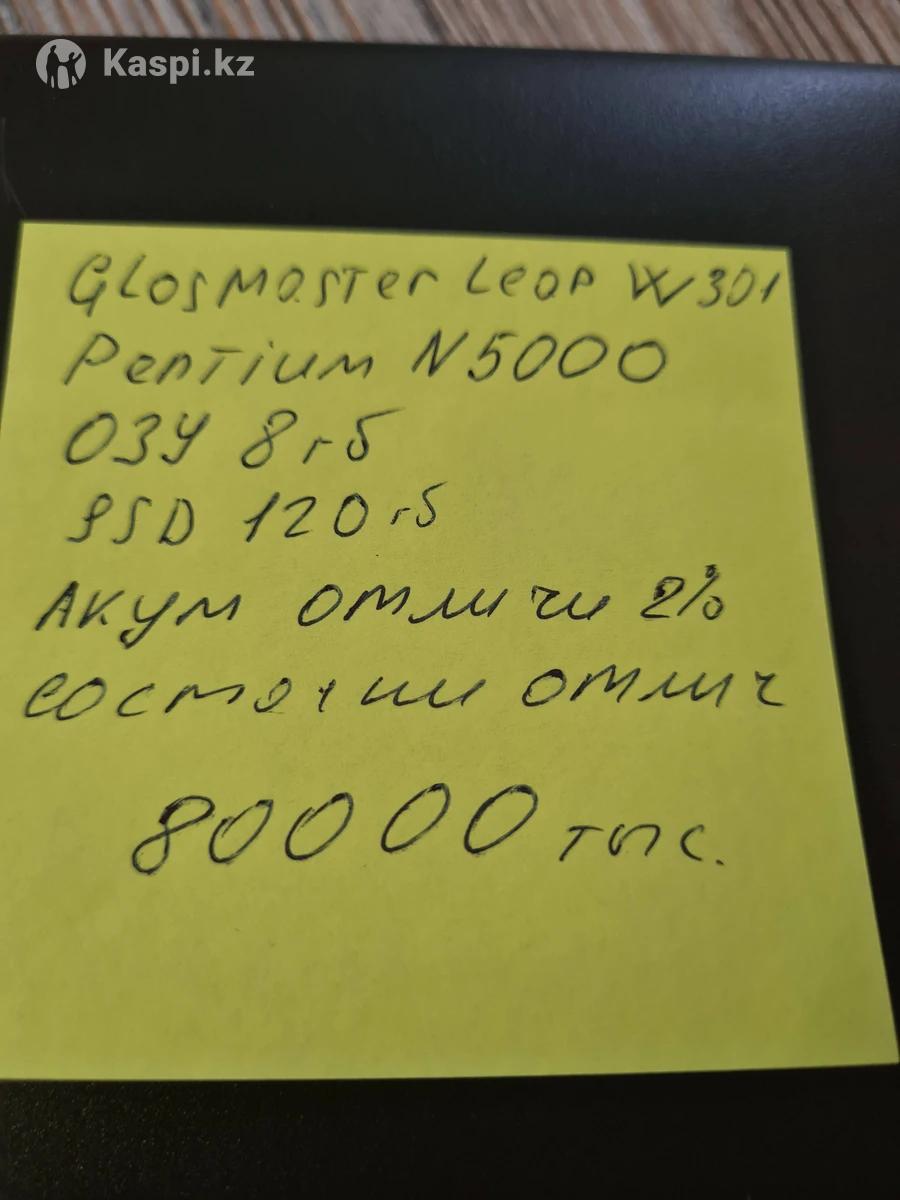 Kaspi.kz
GLosMaster Leap W301
Pentium N5000
ОЗУ 8 гб
SSD 120 гб
Акум отличи 2%
состоянии отлич
80000 тыс.